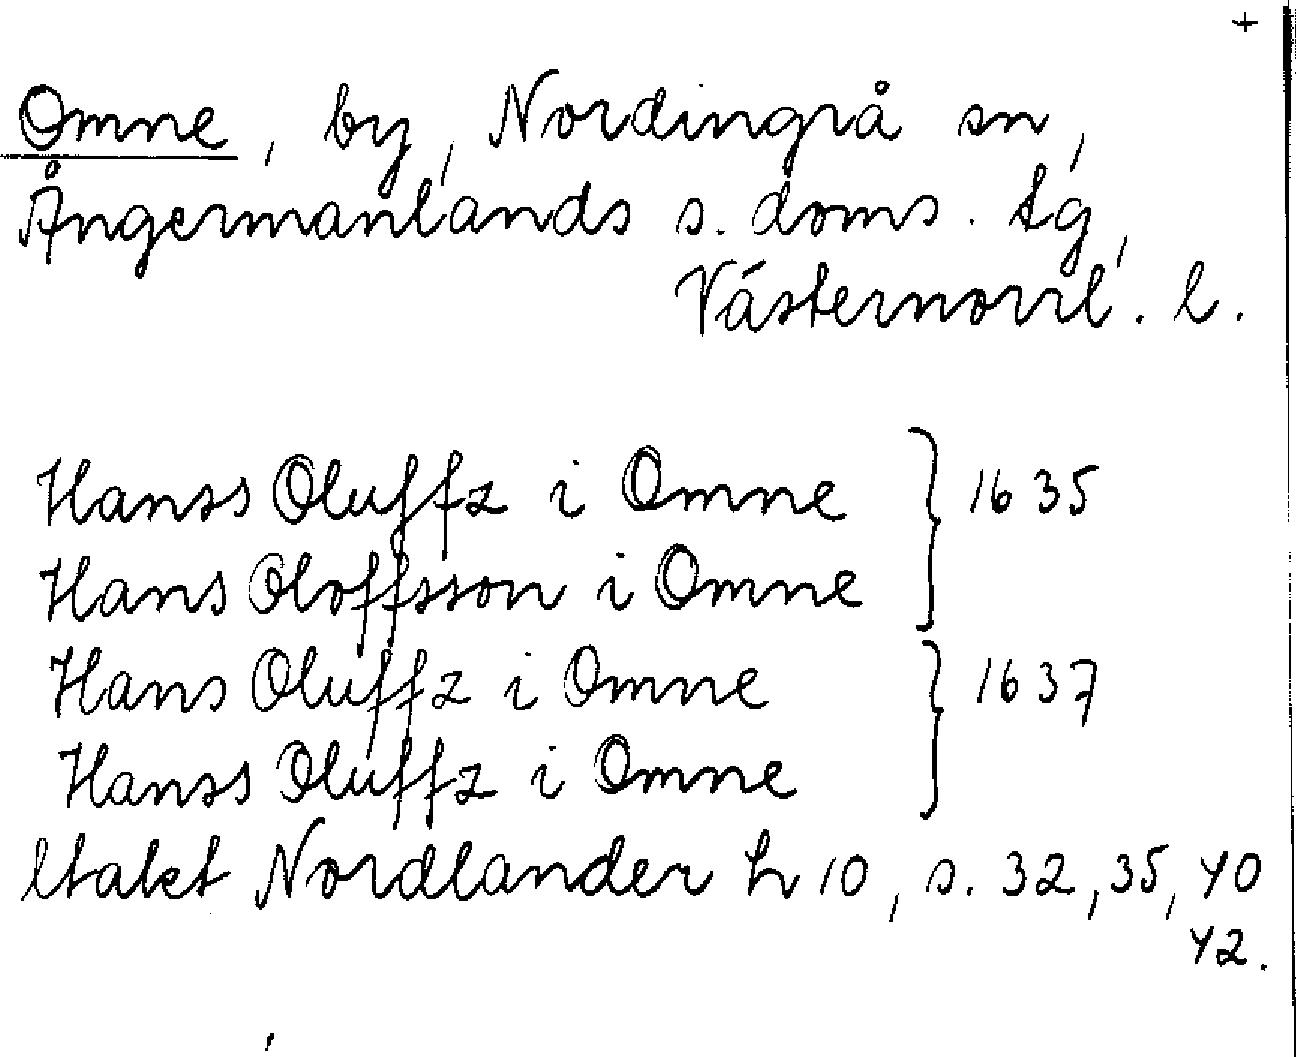 +
Omne, by, Nordingrå sn,
Ångermanlands s. doms. tg,
Västernorrl. l.
Hanss Oluffz i Omne } 1635
Hans Oloffsson i Omne
Hans Oluffz i Omne } 1637
Hanss Oluffz i Omne
Nordlander h 10, s. 32, 35, 40
42.